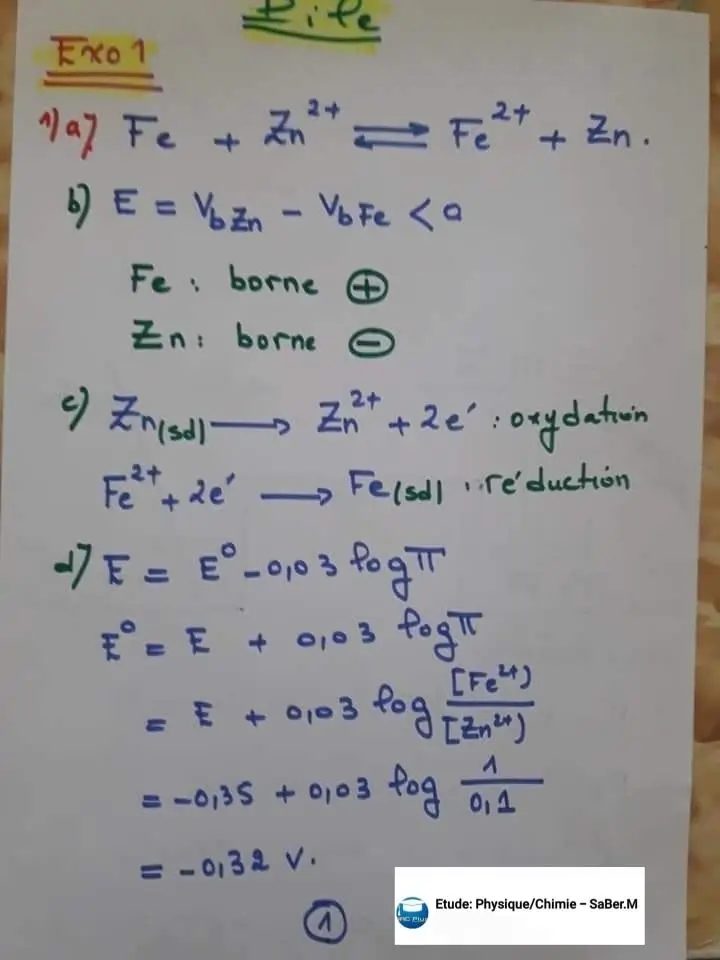 Pile
Exo 1
1) a) Fe + Zn²⁺ ⇌ Fe²⁺ + Zn.
b) E = V_bZn - V_bFe < 0
Fe : borne ⊕
Zn : borne ⊖
c) Zn(sd) → Zn²⁺ + 2e⁻ : oxydation
Fe²⁺ + 2e⁻ → Fe(sd) : réduction
d) E = E⁰ - 0,03 log π
E⁰ = E + 0,03 log π
= E + 0,03 log [Fe²⁺] / [Zn²⁺]
= -0,35 + 0,03 log 1 / 0,1
= -0,32 V.
1
Etude: Physique/Chimie – SaBer.M